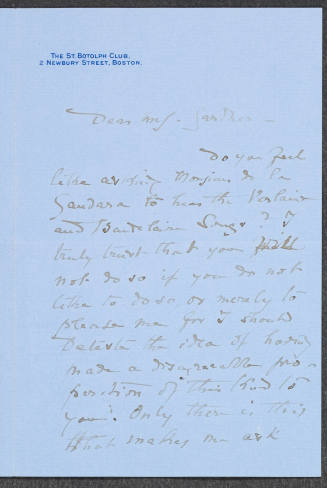 THE ST. BOTOLPH CLUB,
2 NEWBURY STREET, BOSTON.
Dear Mrs. Gardner –
Do you feel
like asking Monsieur de la
Gandara to hear the Verlaine
and Baudelaire Songs? I
truly trust that you will
not do so if you do not
like to do so, or merely to
please me for I should
detest the idea of having
made a disagreeable pro-
position of this kind to
you. Only there is this
that makes me ask